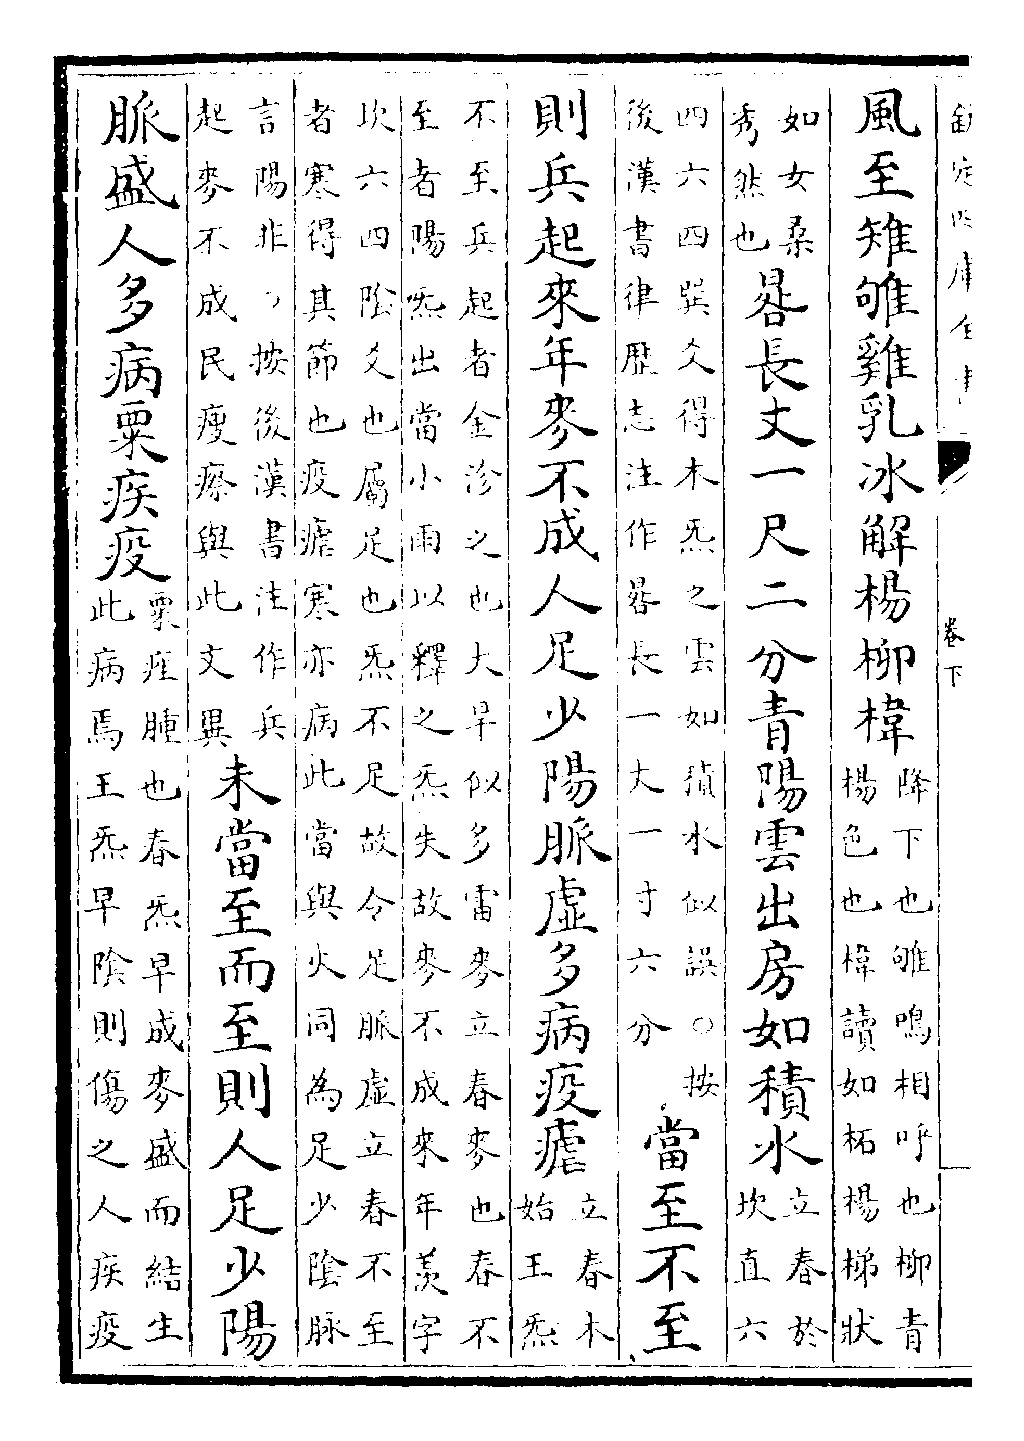 欽定四庫全書
卷下
風至雉雊雞乳冰解楊柳椲
降下也雊鳴相呼也柳青
楊色也椲讀如柘楊梯狀
如女桑
秀然也
晷長丈一尺二分青陽雲出房如積水
立春於
坎直六
四六四巽爻得木炁之雲如積水似誤○按
後漢書律歷志注作晷長一丈一寸六分
當至不至
則兵起來年麥不成人足少陽脈虛多病疫瘧
立春木
始王炁
不至兵起者金沴之也大旱似多雷麥立春麥也春不
至者陽炁出當小雨以釋之炁失故麥不成來年羨字
坎六四陰爻也屬足也炁不足故令足脈虛立春不至
者寒得其節也疫瘧寒亦病此當與火同為足少陰脉
言陽非按後漢書注作兵
起麥不成民瘦瘵與此文異
未當至而至則人足少陽
脈盛人多病粟疾疫
粟疰腫也春炁早成麥盛而結生
此病焉王炁早陰則傷之人疾疫